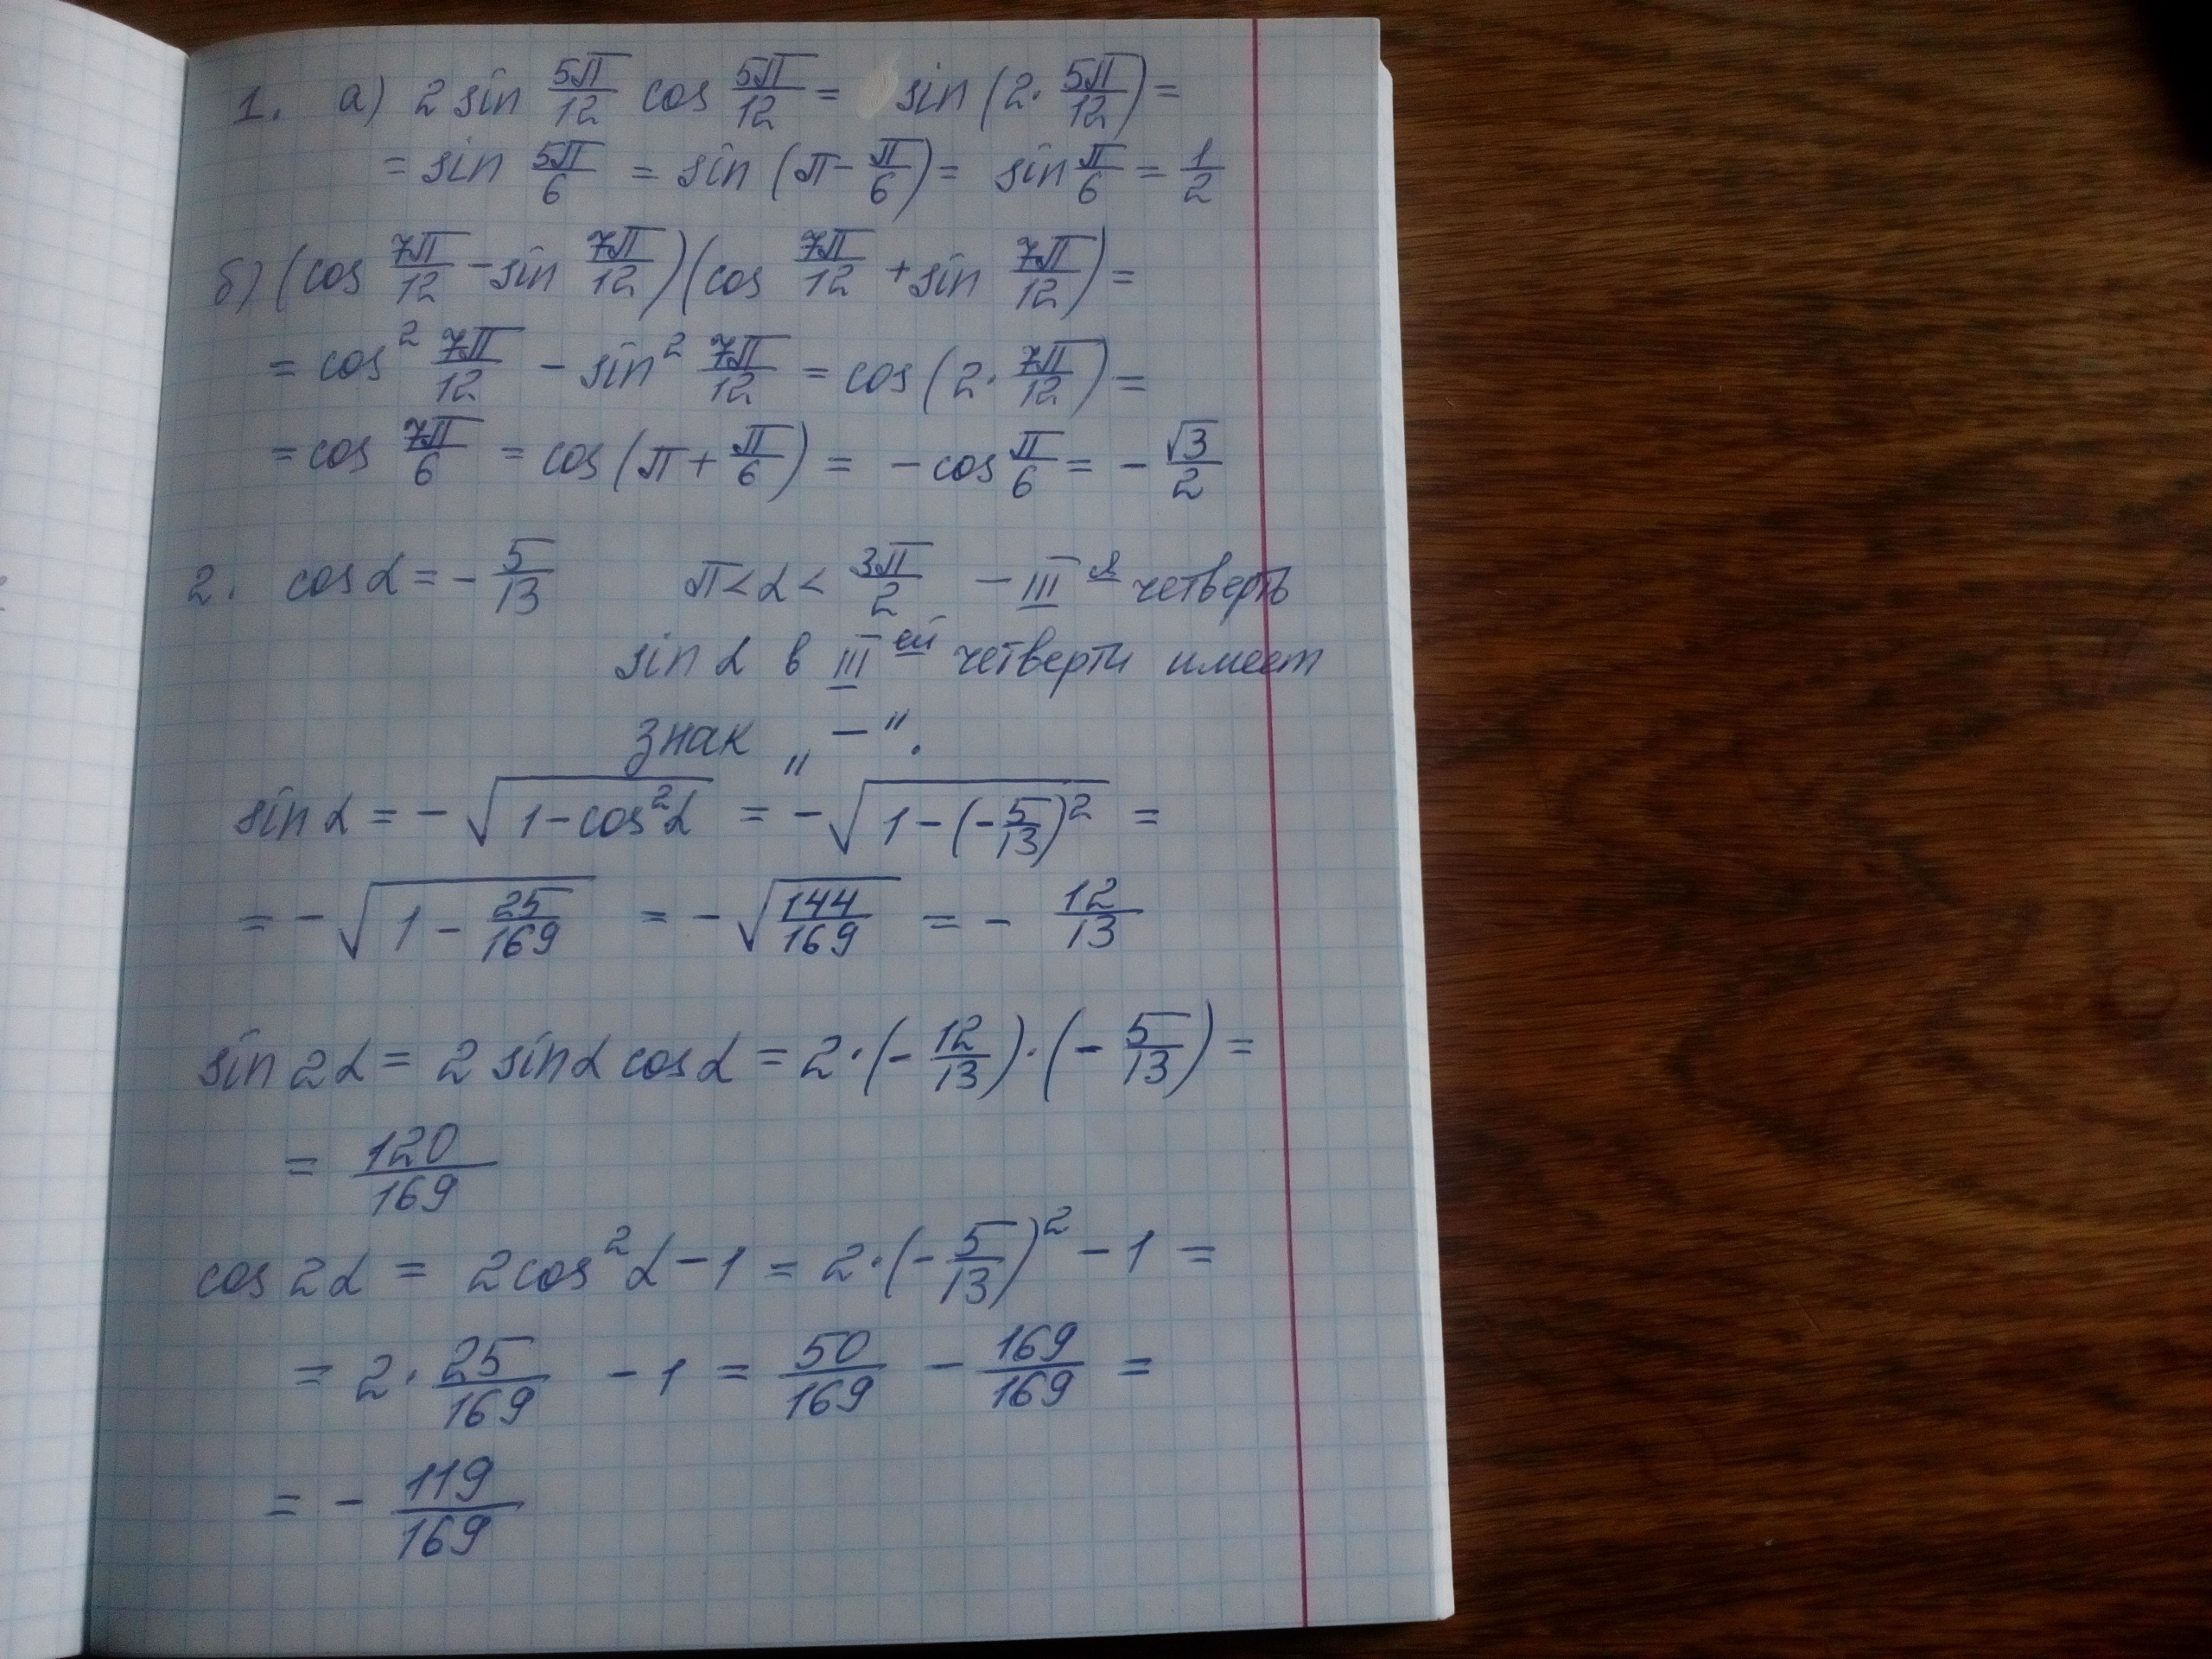 1. а) 2 sin 5π/12 cos 5π/12 = sin (2· 5π/12) =
= sin 5π/6 = sin (π - π/6) = sin π/6 = 1/2
б) (cos 7π/12 - sin 7π/12)(cos 7π/12 + sin 7π/12) =
= cos² 7π/12 - sin² 7π/12 = cos (2· 7π/12) =
= cos 7π/6 = cos (π + π/6) = - cos π/6 = - √3/2
2. cos α = - 5/13 π < α < 3π/2 - III я четверть
sin α в III ей четверти имеет
знак „ - “.
sin α = - √(1 - cos²α) = - √(1 - (- 5/13)²) =
= - √(1 - 25/169) = - √(144/169) = - 12/13
sin 2α = 2 sin α cos α = 2·(- 12/13)·(- 5/13) =
= 120/169
cos 2α = 2cos²α - 1 = 2·(- 5/13)² - 1 =
= 2· 25/169 - 1 = 50/169 - 169/169 =
= - 119/169